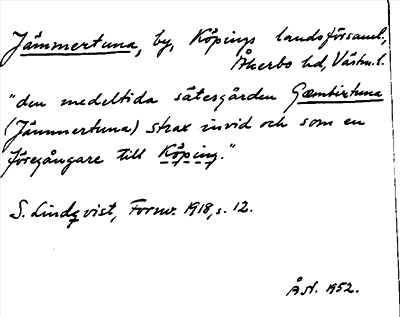 Jämmertuna, by, Köpings landsförsaml.,
Åkerbo hd, Västm. l.
"den medeltida sätesgården Gæmbirtuna
(Jämmertuna) strax invid och som en
föregångare till Köping."
S. Lindqvist, Fornv. 1918, s. 12.
Åst. 1952.